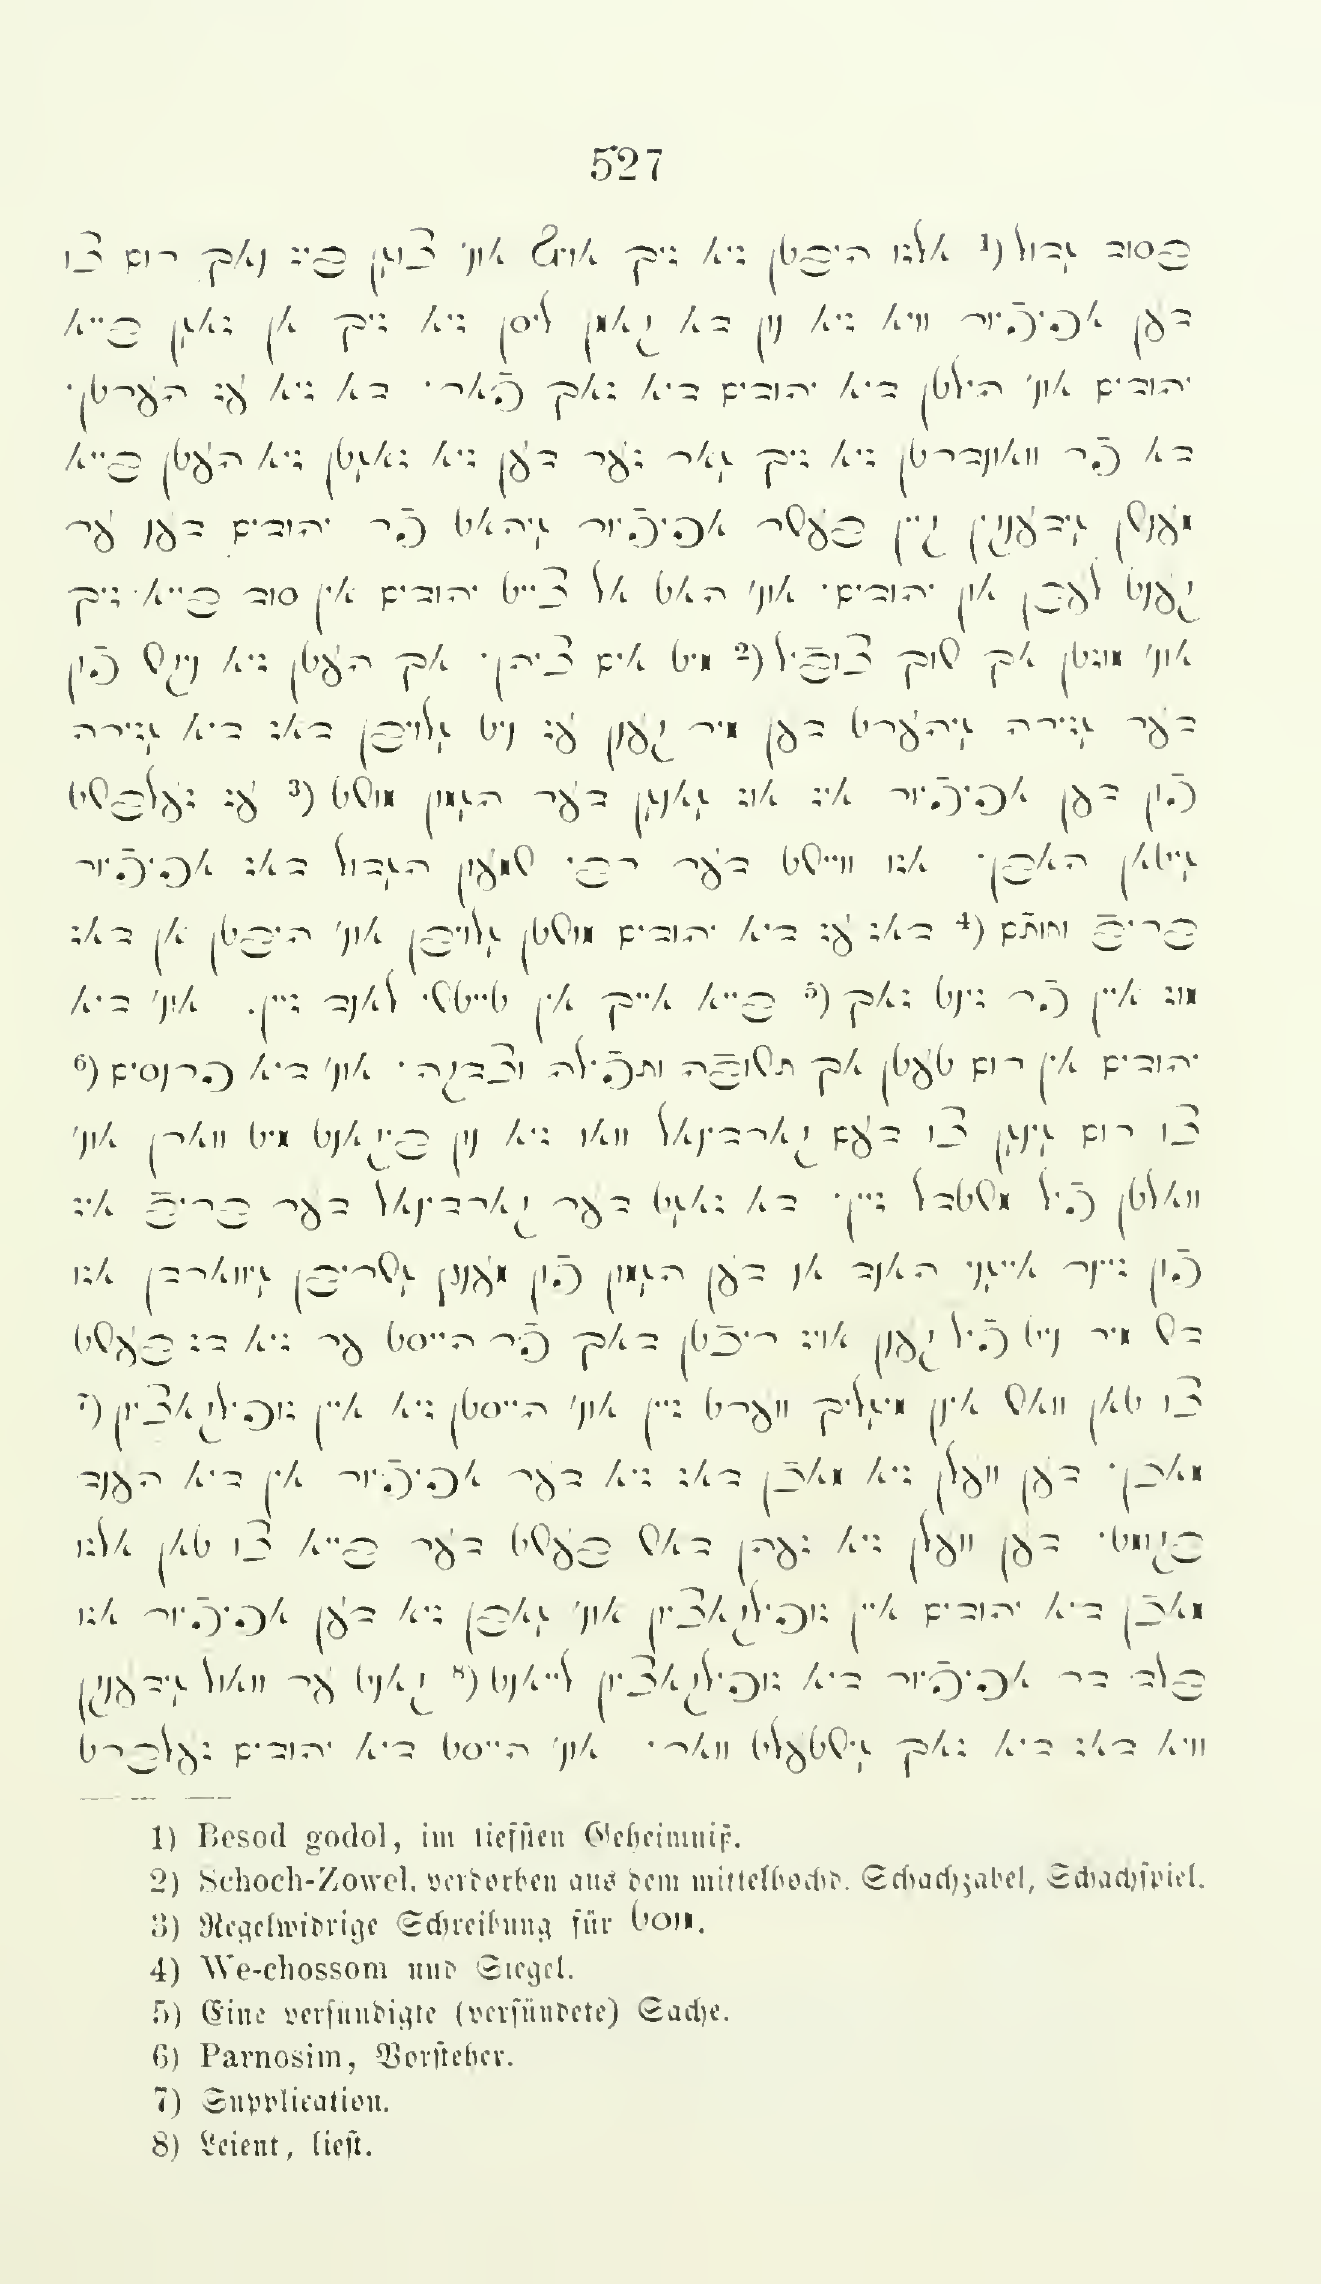 527
בסוד גדול (1 אלזו היבטן זיא זיך אויש אונ' צוגן ביז נאך רום צו
דען אפיפֿיור וויא זיא נון דא קאמן ליסן זיא זיך אן זאגן בייא
יהודים אונ' הילטן דיא יהודים דיא זאך פֿאר. דא זיא עז הערטן.
דא פֿר וואונדרטן זיא זיך גאר זער דען זיא זאגטן זיא העטן בייא
מענשן גידענקן קיין בעשר אפיפֿיור גיהאט פֿר יהודים דען ער
קענט לעבן און יהודים. אונ' האט אל צייט יהודים אין סוד בייא זיך
אונ' מוזטן אך שוך צובֿיל (2 מיט אים ציהן. אך העטן זיא ניקש פֿון
דער גזירה גיהערט דען מיר קענן עז ניט גלויבן דאז דיא גזירה
פֿון דען אפיפֿיור איז אוז גאנגן דער הגמון מושט (3 עז זעלבשט
גיטאן האבן. אזו וויישט דער רבי שמעון הגדול דאז אפיפֿיור
בריבֿ וחותֿם (4 דאז עז דיא יהודים מושטן גלויבן אונ' היבטן אן דאז
מוז איין פֿר זינט זאך (5 בייא אייך אין טייטש לאנד זיין. אונ' דיא
יהודים אין רום טעטן אך תשובֿה ותפֿילה וצדקה. אונ' דיא פרנסים (6
צו רום גינגן צו דעם קארדינאל וואו זיא נון ביקאנט מיט ווארן אונ'
וואלטן פֿיל משטדל זיין. דא זאגט דער קארדינאל דער בריבֿ איז
פֿון זיינר אייגני האנד אן דען הגמון פֿון מענץ גשריבן גיווארדן אזו
דש מיר ניט פֿיל קענן אויז ריכֿטן דאך פֿר הייסט ער זיא דז בעשט
צו טאן וואש אינן מיגליך ווערט זיין אונ' הייסטן זיא איין זופליקאציון (7
מאכֿן. דען וועלן זיא מאכֿן דאז זיא דער אפיפֿיור אין דיא הענד
ביקומט. דען וועלן זיא זעהן דאש בעשט דער בייא צו טאן אלזו
מאכֿן דיא יהודים איין זופליקאציון אונ' גאבן זיא דען אפיפֿיור אזו
בלד דר אפיפֿיור דיא זופליקאציון לייאנט (8 קאניט ער וואול גידענקן
וויא דאז דיא זאך גישטעלט ווארי. אונ' הייסט דיא יהודים זעלברט
1) Besod godol, im tiefsten Geheimniß.
2) Schoch-Zowel, verdorben aus dem mittelhochd. Schachzabel, Schachspiel.
3) Regelwidrige Schreibung für מוסט.
4) We-chossom und Siegel.
5) Eine versundigte (versündete) Sache.
6) Parnosim, Vorsteher.
7) Supplication.
8) Leient, liest.